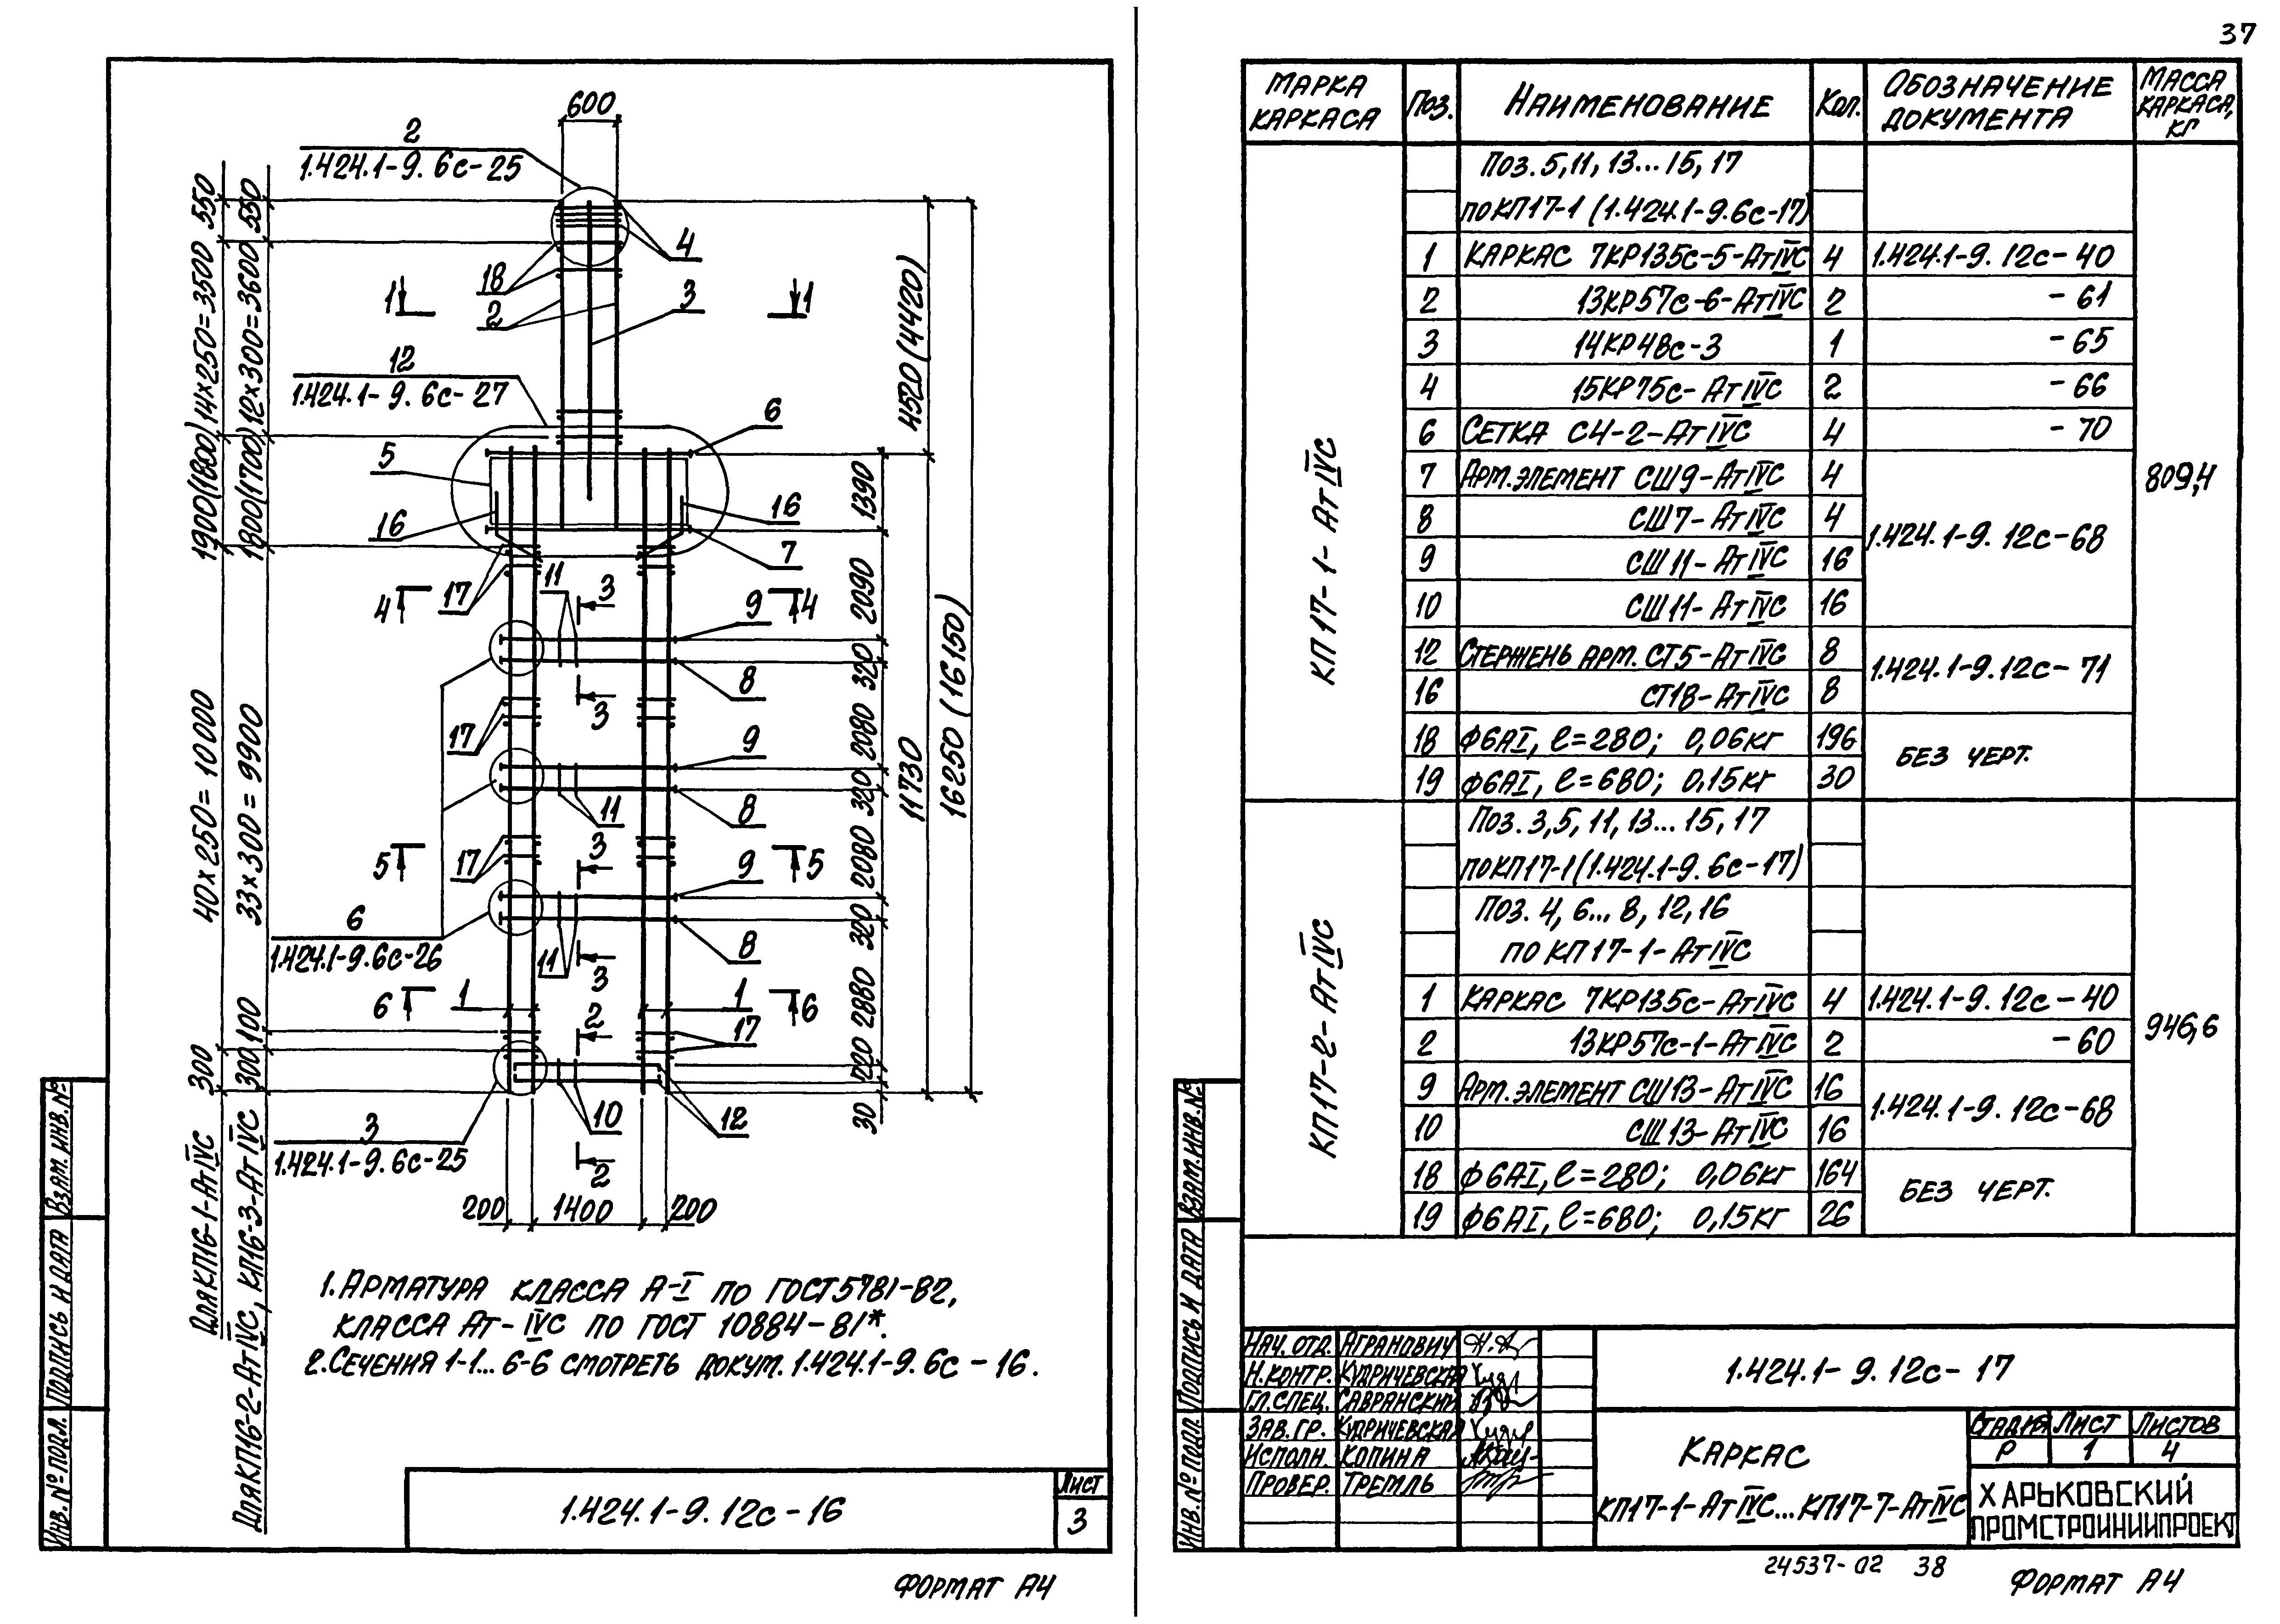 37
600
2
1.424.1-9. 6с-25
550
550
4
18
2
3
1
1
14×250=3500
12×300=3600
4520(4420)
12
1.424.1-9. 6с-27
6
5
16
16
7
1390
1900(1800)
1800(1700)
17
11
3
4
4
9
2090
8
320
3
17
9
2080
8
320
11
40×250=10000
33×300=9900
11730
16250 (16150)
17
3
5
5
9
2080
8
320
6
1.424.1-9.6с-26
11
3
6
6
1
1
2
17
2880
100
300
300
720
30
10
12
3
1.424.1-9. 6с-25
2
200
1400
200
Для КП16-1-АтIVС
Для КП16-2-АтIVС, КП16-3-АтIVС
1. Арматура класса А-I по ГОСТ 5781-82,
класса Ат-IVС по ГОСТ 10884-81*.
2. Сечения 1-1... 6-6 смотреть докум. 1.424.1-9. 6с-16.
Взам. инв. №
Подпись и дата
Инв. № подл.
1.424.1-9. 12с-16
Лист
3
Формат А4
Марка каркаса
Поз.
Наименование
Кол.
Обозначение документа
Масса каркаса, кг
КП17-1-АтIVС
809,4
Поз. 5, 11, 13... 15, 17
по КП17-1 (1.424.1-9.6с-17)
1 Каркас 7КР135с-5-АтIVС 4 1.424.1-9. 12с-40
2 13КР57с-6-АтIVС 2 -61
3 14КР48с-3 1 -65
4 15КР75с-АтIVС 2 -66
6 Сетка С4-2-АтIVС 4 -70
7 Арм. элемент СШ9-АтIVС 4
8 СШ7-АтIVС 4 1.424.1-9. 12с-68
9 СШ11-АтIVС 16
10 СШ11-АтIVС 16
12 Стержень арм. СТ5-АтIVС 8 1.424.1-9.12с-71
16 СТ18-АтIVС 8
18 ф6АI, l=280; 0,06кг 196 без черт.
19 ф6АI, l=680; 0,15кг 30
КП17-2-АтIVС
946,6
Поз. 3, 5, 11, 13... 15, 17
по КП17-1 (1.424.1-9. 6с-17)
Поз. 4, 6... 8, 12, 16
по КП17-1-АтIVС
1 Каркас 7КР135с-АтIVС 4 1.424.1-9. 12с-40
2 13КР57с-1-АтIVС 2 -60
9 Арм. элемент СШ13-АтIVС 16 1.424.1-9. 12с-68
10 СШ13-АтIVС 16
18 ф6АI, l=280; 0,06кг 164 без черт.
19 ф6АI, l=680; 0,15кг 26
Взам. инв. №
Подпись и дата
Инв. № подл.
Нач. отд. Агранович
Н. контр. Кудричевская
Гл. спец. Савранский
Зав. гр. Кудричевская
Исполн. Копина
Провер. Тремль
1.424.1-9. 12с-17
Каркас
КП17-1-АтIVС...КП17-7-АтIVС
Стадия Лист Листов
Р 1 4
ХАРЬКОВСКИЙ
ПРОМСТРОЙНИИПРОЕКТ
24537-02 38
Формат А4